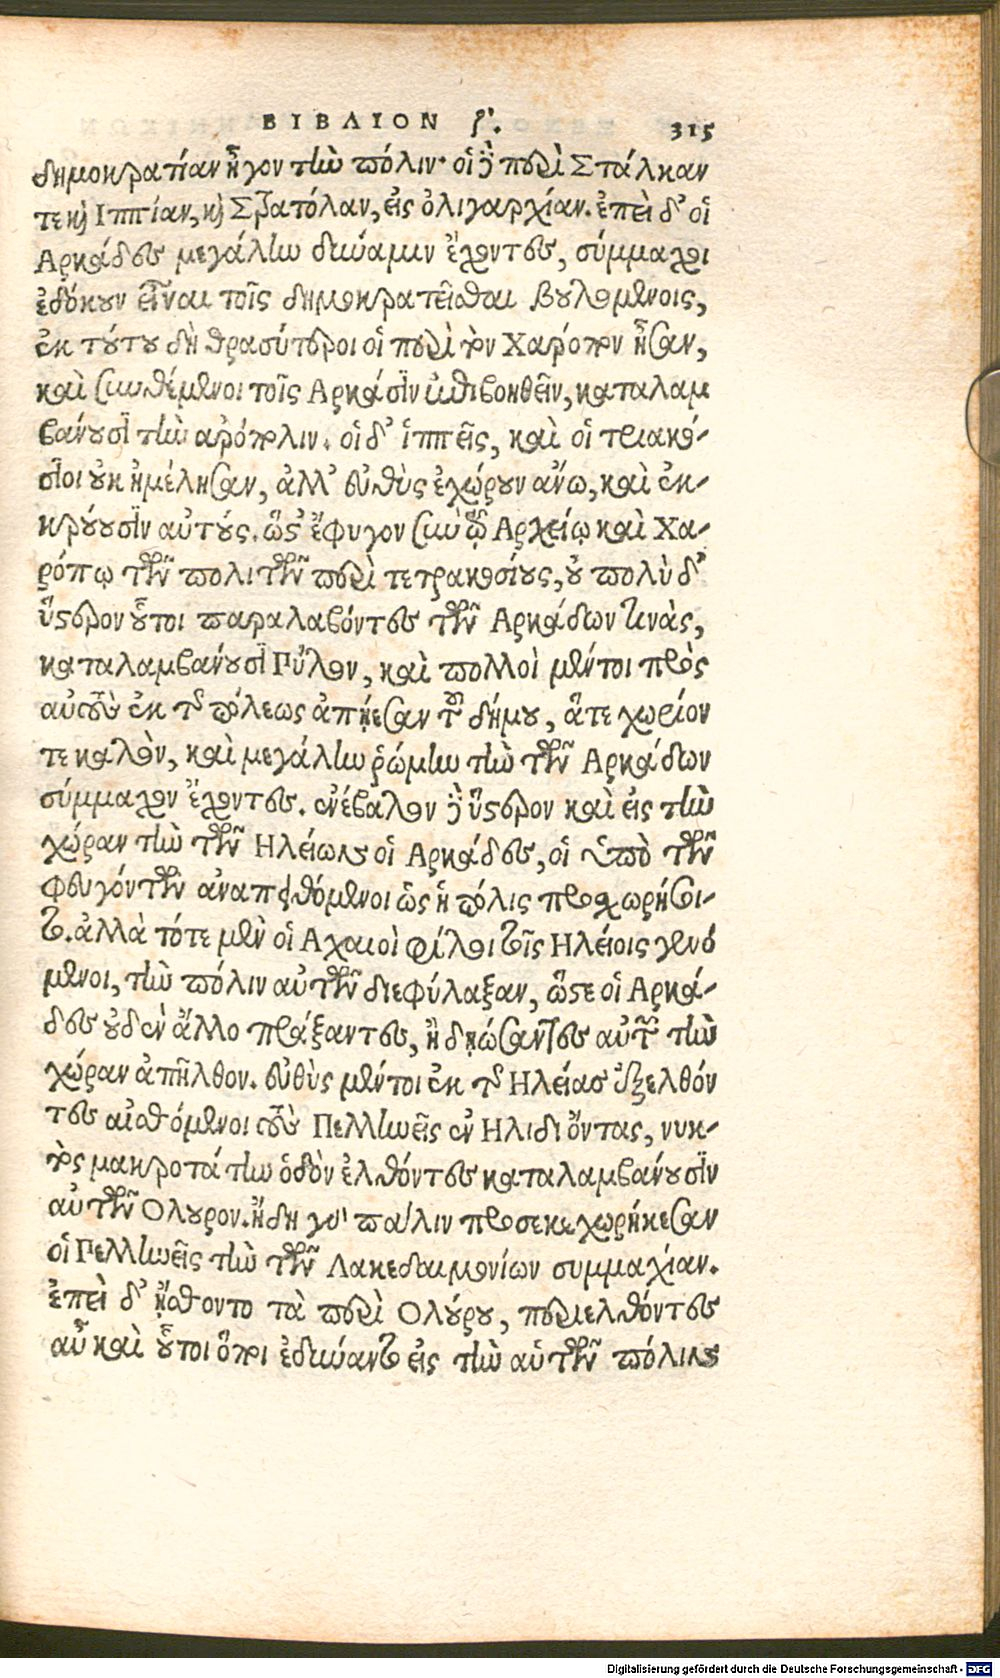 ΒΙΒΛΙΟΝ ζʹ. 315
δημοκρατίαν ἦγον τὴν πόλιν· οἱ δὲ περὶ Στάλκαν
τε καὶ Ιππίαν, καὶ Στρατόλαν, εἰς ὀλιγαρχίαν. ἐπεὶ δ' οἱ
Αρκάδες μεγάλην δύναμιν ἔχοντες, σύμμαχοι
ἐδόκουν εἶναι τοῖς δημοκρατεῖσθαι βουλομένοις,
ἐκ τούτου δὴ θρασύτεροι οἱ περὶ τὸν Χάροπον ἦσαν,
καὶ συνθέμενοι τοῖς Αρκάσιν ἐπιβοηθεῖν, καταλαμ
βάνουσι τὴν ἀκρόπολιν. οἱ δ' ἱππεῖς, καὶ οἱ τριακό-
σιοι οὐκ ἠμέλησαν, ἀλλ' εὐθὺς ἐχώρουν ἄνω, καὶ ἐκ-
κρούουσιν αὐτούς. ὥστ' ἔφυγον σὺν τῷ Αρχείῳ καὶ Χα-
ρόπῳ τῶν πολιτῶν περὶ τετρακοσίους, οὐ πολὺ δ'
ὕστερον οὗτοι παραλαβόντες τῶν Αρκάδων τινὰς,
καταλαμβάνουσι Πύλον, καὶ πολλοὶ μέντοι πρὸς
αὐτοὺς ἐκ τῆς πόλεως ἀπῄεσαν τοῦ δήμου, ἅτε χωρίον
τε καλὸν, καὶ μεγάλην ῥώμην τὴν τῶν Αρκάδων
σύμμαχον ἔχοντες. ἐνέβαλον δὲ ὕστερον καὶ εἰς τὴν
χώραν τὴν τῶν Ηλείων οἱ Αρκάδες, οἱ ὑπὸ τῶν
φευγόντων ἀναπειθόμενοι ὡς ἡ πόλις προσχωρήσοι-
το. ἀλλὰ τότε μὲν οἱ Αχαιοὶ φίλοι τοῖς Ηλείοις γενό
μενοι, τὴν πόλιν αὐτῶν διεφύλαξαν, ὥστε οἱ Αρκά-
δες οὐδὲν ἄλλο πράξαντες, ἢ δῃώσαντες αὐτῶν τὴν
χώραν ἀπῆλθον. εὐθὺς μέντοι ἐκ τῆς Ηλείας ἐξελθόν
τες αἰσθόμενοι τοὺς Πελληνεῖς ἐν Ηλιδι ὄντας, νυκ-
τὸς μακροτάτην ὁδὸν ἐλθόντες καταλαμβάνουσιν
αὐτῶν Ολουρον. ἤδη γὰρ πάλιν προσεκεχωρήκεσαν
οἱ Πελληνεῖς τὴν τῶν Λακεδαιμονίων συμμαχίαν.
ἐπεὶ δ' ᾔσθοντο τὰ περὶ Ολούρου, περιελθόντες
αὖ καὶ οὗτοι ὅπῃ ἐδύναντο εἰς τὴν αὑτῶν πόλιν
Digitalisierung gefördert durch die Deutsche Forschungsgemeinschaft - DFG